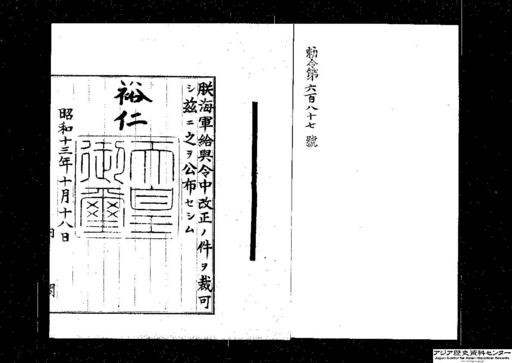 勅令第六百八十七號
朕海軍給與令中改正ノ件ヲ裁可
シ茲ニ之ヲ公布セシム
裕仁
天皇御璽
昭和十三年十月十八日
内閣
アジア歴史資料センター
Japan Center for Asian Historical Records